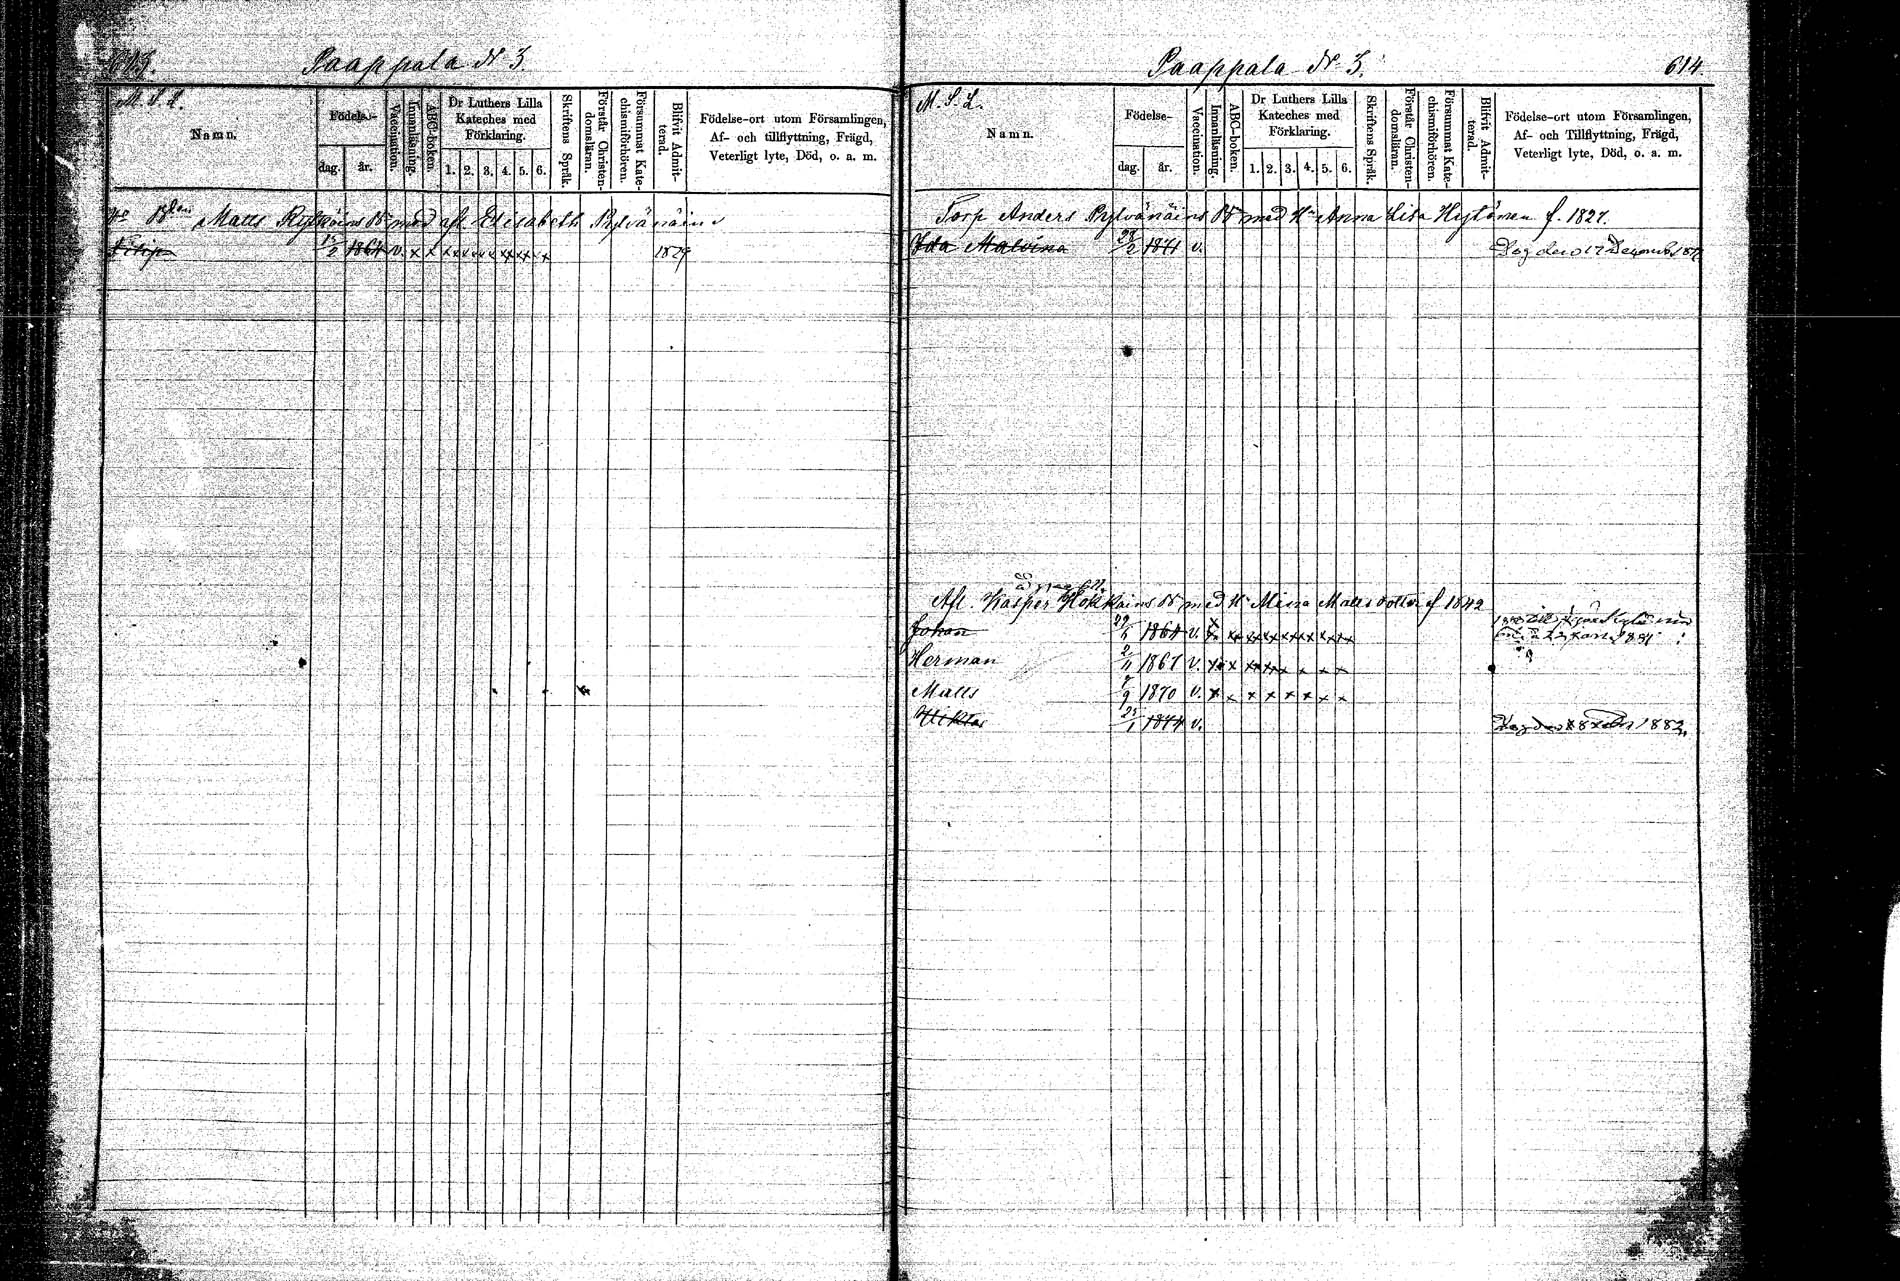 613.
Paappala N 3.
M. S. L.
Namn.
Födelse-
dag.
år.
Vaccination.
Innanläsning.
ABC-boken.
Dr Luthers Lilla
Kateches med
Förklaring.
1. 2. 3. 4. 5. 6.
Skriftens Språk.
Förstår Christen-
domsläran.
Försummat Kate-
chismiförhören.
Blifvit Admit-
terad.
Födelse-ort utom Församlingen,
Af- och tillflyttning, Frägd,
Veterligt lyte, Död, o. a. m.
Matts med afl. Elisabeth Pylvänäine
15/2 1864 v. x x x x x x x x x x x x 1879
Paappala N 3.
614.
M. S. L.
Namn.
Födelse-
dag.
år.
Vaccination.
Innanläsning.
ABC-boken.
Dr Luthers Lilla
Kateches med
Förklaring.
1. 2. 3. 4. 5. 6.
Skriftens Språk.
Förstår Christen-
domsläran.
Försummat Kate-
chismiförhören.
Blifvit Admit-
terad.
Födelse-ort utom Församlingen,
Af- och Tillflyttning, Frägd,
Veterligt lyte, Död, o. a. m.
Torp Anders Pylvänäins med Anna Lisa Hytönen f. 1827.
Ida Malvina 28/2 1871 v. Dog den 17 December
Afl. Kasper Hokkains med Mina Mattsdotter f 1842
Johan 1864 v. x x x x x x x x x x x
Herman 2/11 1867 v. x x x x x x x x x
Matts 7/9 1870 v. x x x x x x x x
Viktor 25/1 1874 v. Dog den 1883.